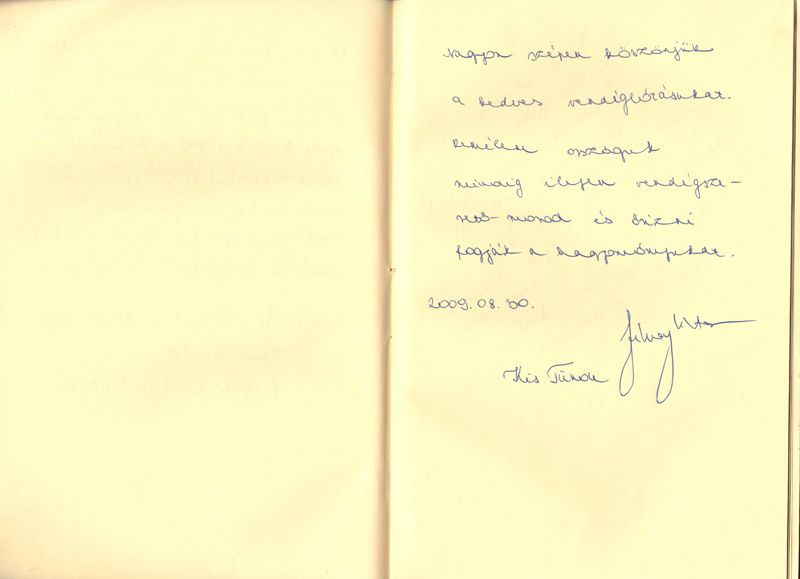 Nagyon szépen köszönjük
a kedves vendéglátásukat.
Remélem országuk
mindig ilyen vendégsze-
rető marad és őrizni
fogják a hagyományukat.
2009.08.30.
Kis Tünde